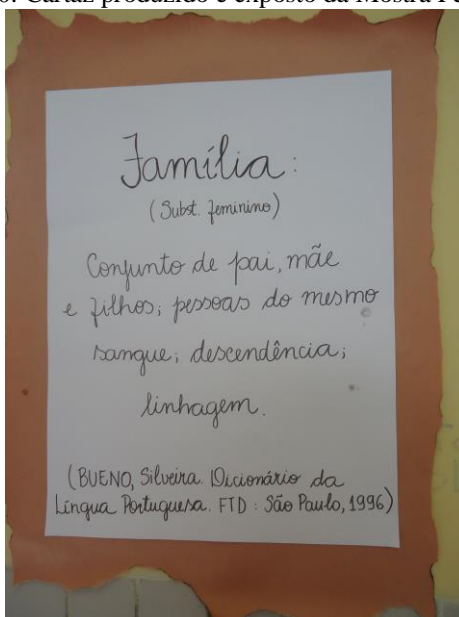 Cartaz produzido e exposto da Mostra
Família:
(Subst. feminino)
Conjunto de pai, mãe
e filhos; pessoas do mesmo
sangue; descendência;
linhagem.
(BUENO, Silveira. Dicionário da
Língua Portuguesa. FTD: São Paulo, 1996)